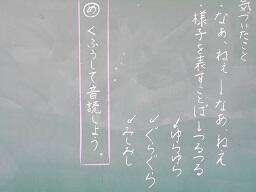 気づいたこと
・なぁ、ねぇ→なあ ねえ
・様子を表すことば→つるつる
✓ゆらゆら
✓ぐらぐら
め くふうして音読しよう。